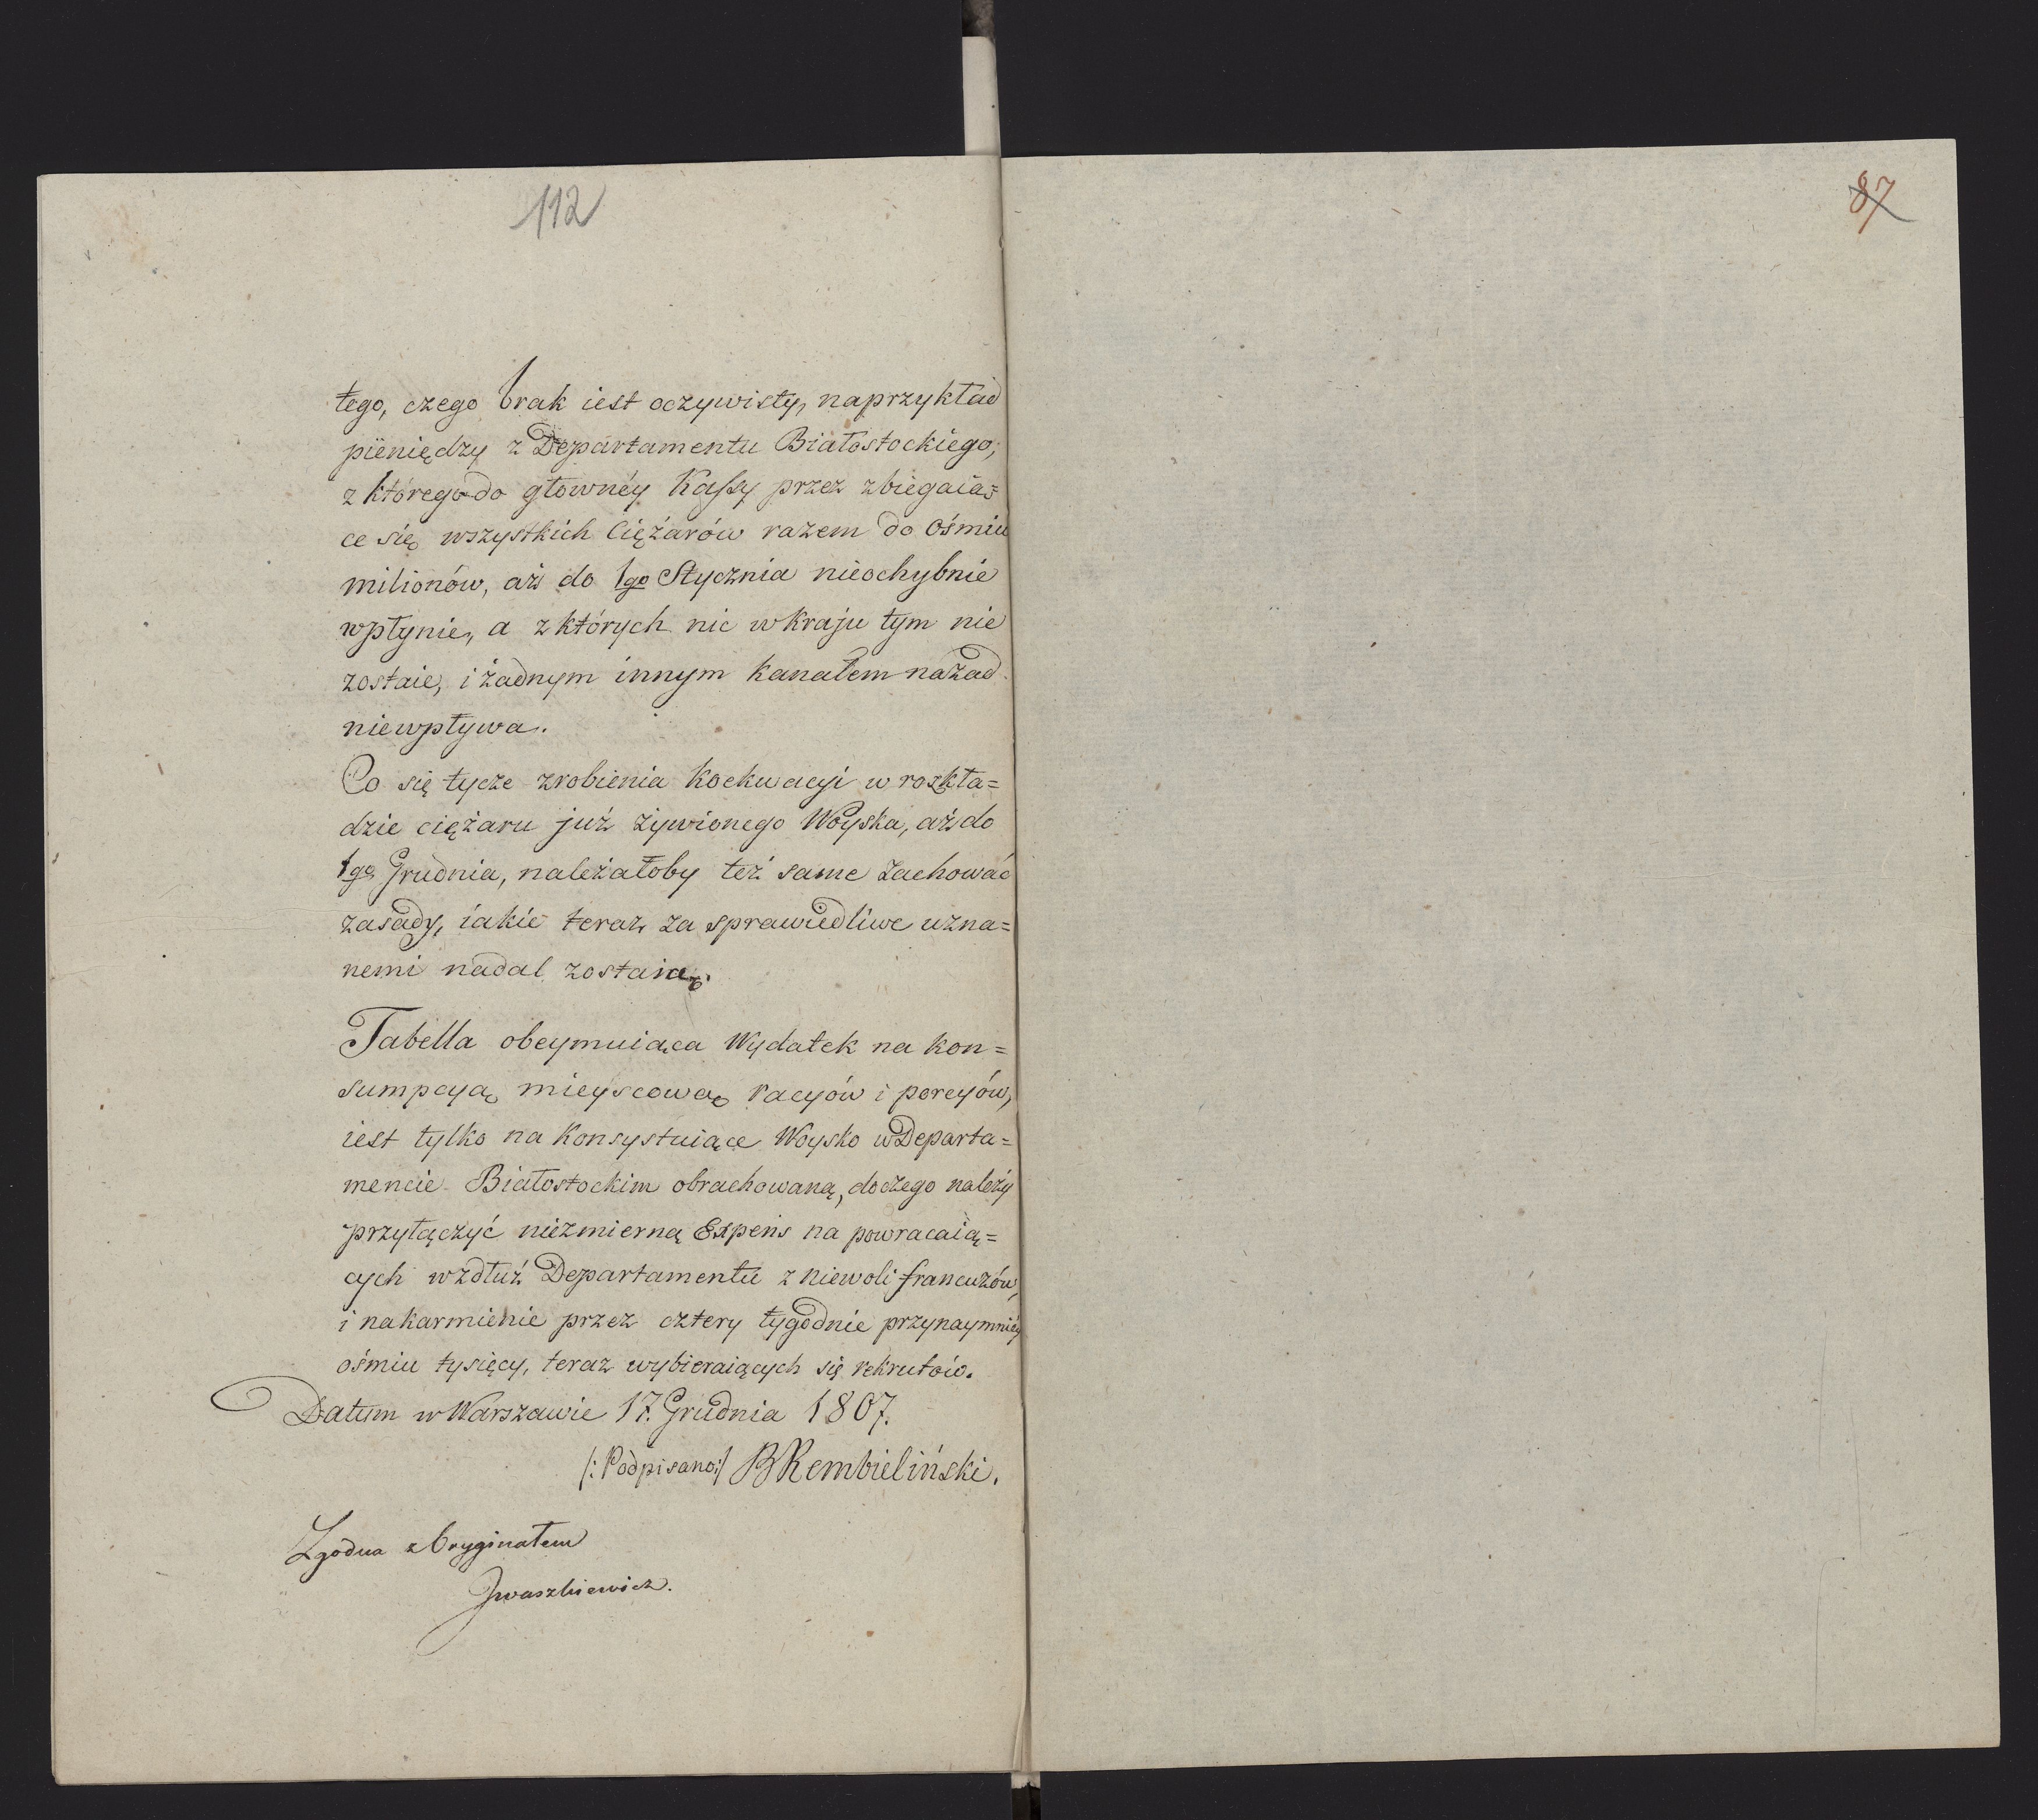 112
87
tego, czego brak iest oczywisty, naprzykład
pieniędzy z Departamentu Białostockiego,
z którego do głownéy Kassy przez zbiegaią=
ce się wszystkich Ciężarów razem do Ośmiu
milionów, aż do 1go Stycznia nieochybnie
wpłynie, a z których nic w kraju tym nie
zostaie, i żadnym innym kanałem nazad
niewpływa.
Co się tycze zrobienia Koekwacyi w rozkła=
dzie ciężaru już żywionego Woyska, aż do
1go Grudnia, należałoby też same zachować
zasady, iakie teraz za sprawiedliwe uzna=
nemi nadal zostaią.
Tabella obeymuiąca Wydatek na kon=
sumpcyą mieyscową racyów i porcyów,
iest tylko na Konsystuiące Woysko w Departa=
mencie Białostockim obrachowaną, do czego należy
przyłączyć niezmierną Expens na powracaią=
cych wzdłuż Departamentu z niewoli francuzów,
i nakarmienie przez cztery tygodnie przynaymniéy
ośmiu tysięcy, teraz wybieraiących się rekrutów.
Datum w Warszawie 17. Grudnia 1807.
/: Podpisano :/ B Rembieliński.
Zgodna z Oryginałem
Jwaszkiewicz.